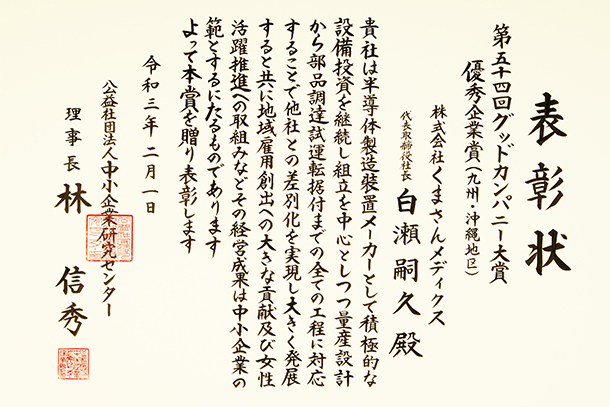 表彰状
第五十四回グッドカンパニー大賞
優秀企業賞(九州・沖縄地区)
株式会社くまさんメディクス
代表取締役社長 白瀬嗣久殿
貴社は半導体製造装置メーカーとして積極的な
設備投資を継続し組立を中心としつつ量産設計
から部品調達試運転据付までの全ての工程に対応
することで他社との差別化を実現し大きく発展
すると共に地域雇用創出への大きな貢献及び女性
活躍推進への取組みなどその経営成果は中小企業の
範とするにたるものであります
よって本賞を贈り表彰します
令和三年二月一日
公益社団法人中小企業研究センター
理事長 林信秀